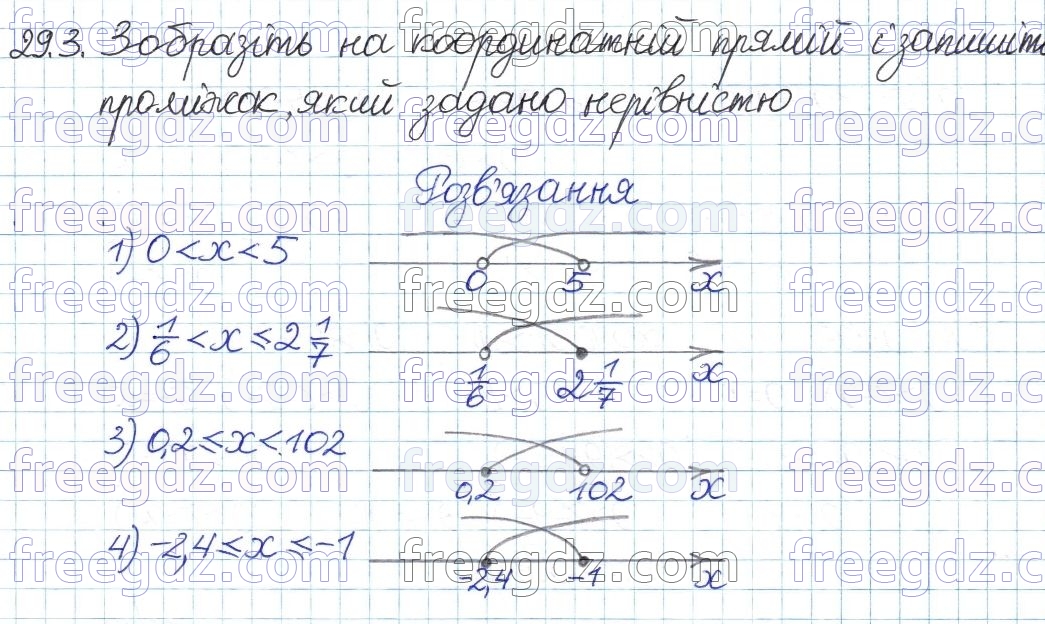 29.3. Зобразіть на координатній прямій і запишіть
проміжок, який задано нерівністю
Розв'язання
1) 0 < x < 5
0 5 x
2) 1/6 < x ≤ 2 1/7
1/6 2 1/7 x
3) 0,2 ≤ x < 102
0,2 102 x
4) -2,4 ≤ x ≤ -1
-2,4 -1 x
freegdz.com